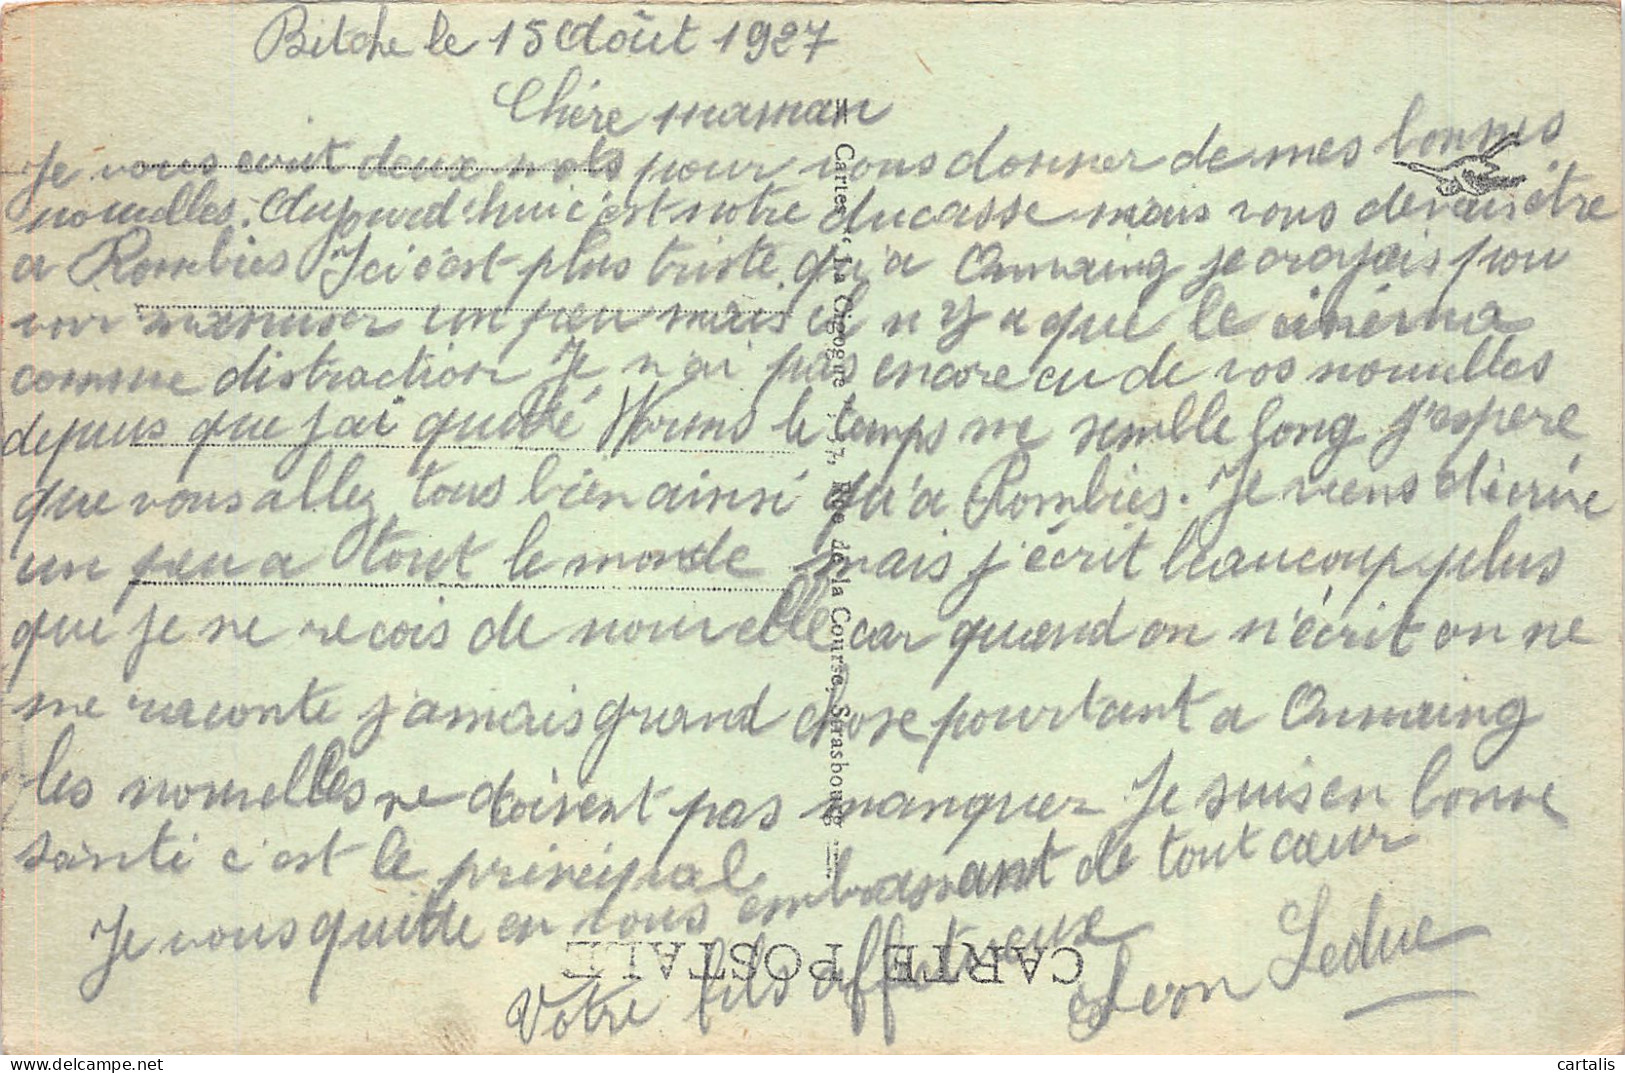 Bitche le 15 Août 1927
Chère maman
Je vous ecrit deux mots pour vous donner de mes bonnes
nouvelles. Aujourd'hui c'est notre ducasse mais vous devais être
a Rombies Ici c'est plus triste qu'a Onnaing je crojais pou
voir m'amuser un peu mais il n'y a que le cinéma
comme distraction Je n'ai pas encore eu de vos nouvelles
depuis que j'ai quitté Worms le temps me semble long j'espere
que vous allez tous bien ainsi qu'a Rombies. Je viens d'ecrire
un peu a tout le monde mais j'écrit beaucoup plus
que je ne recois de nouvelle car quand on n'écrit on ne
me raconte jamais grand chose pourtant a Onnaing
les nouvelles ne doivent pas manquer Je suis en bonne
santé c'est le principal
Je vous quitte en vous embrassant de tout cœur
Votre fils affectueux
Leon Leduc
CARTE POSTALE
Cartes "La Cigogne", 37, Rue de la Course, Strasbourg
cartalis